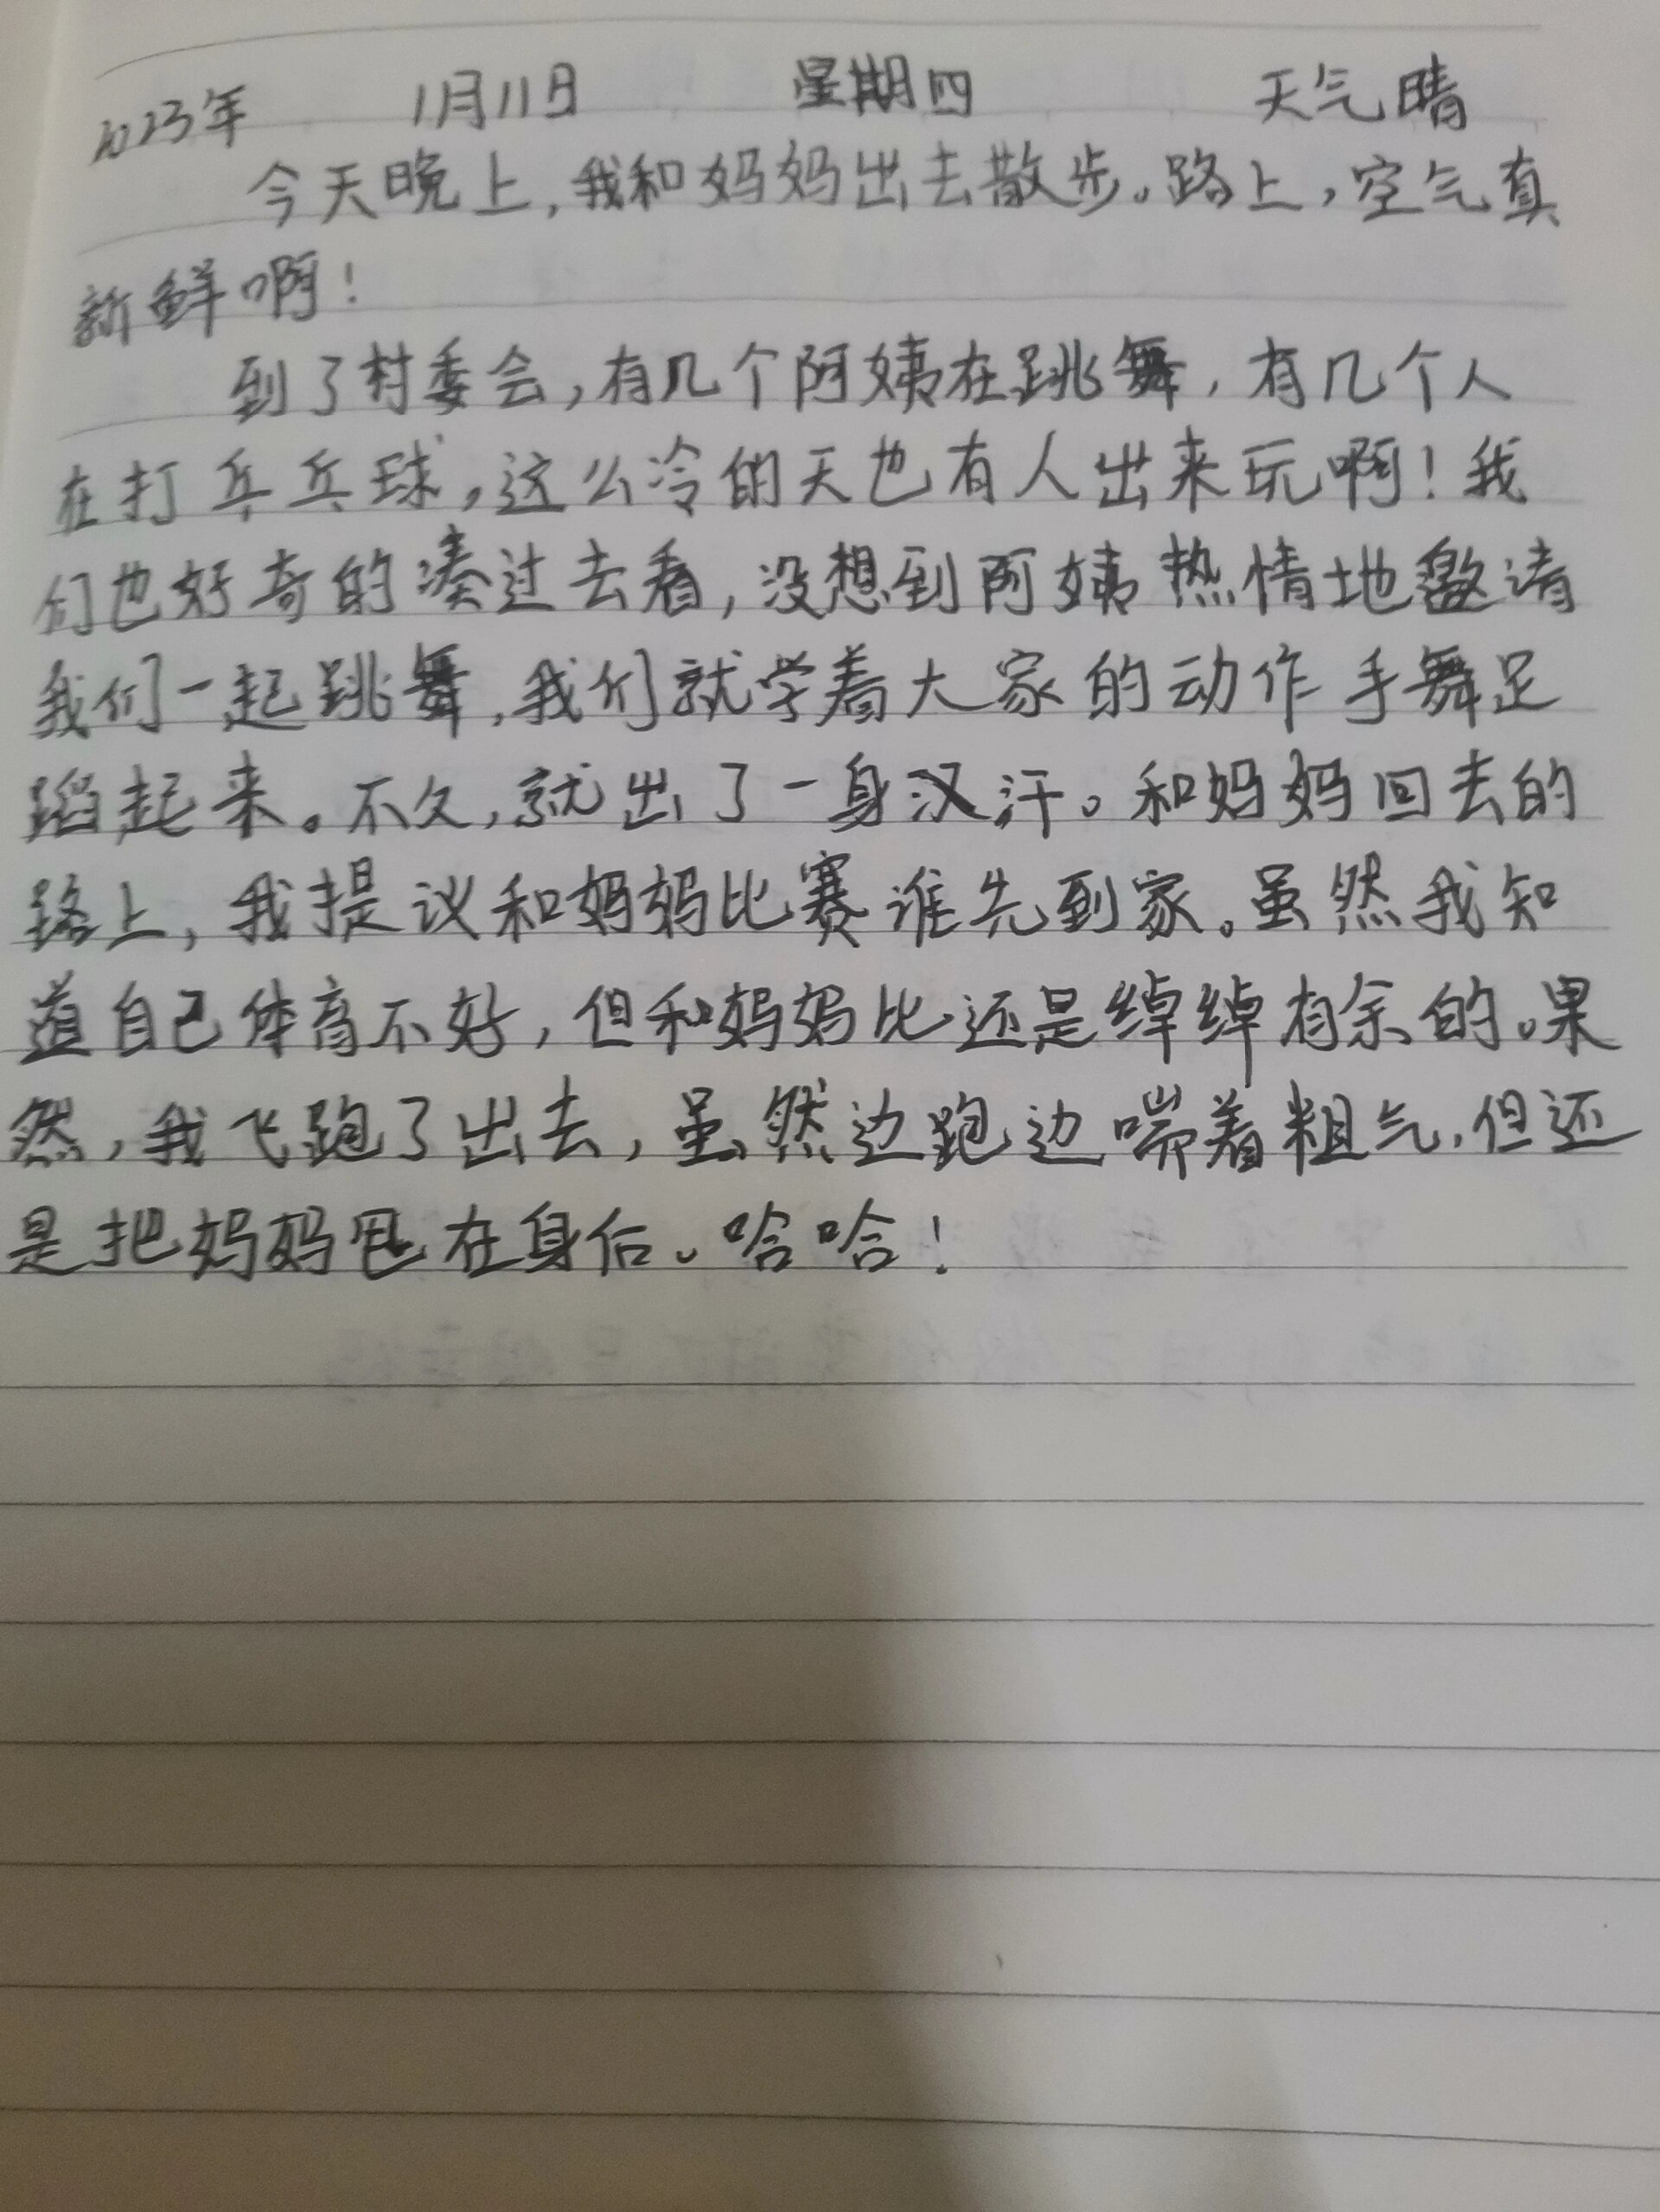 2023年 1月11日 星期四 天气晴
今天晚上,我和妈妈出去散步。路上,空气真
新鲜啊!
到了村委会,有几个阿姨在跳舞,有几个人
在打乒乓球,这么冷的天也有人出来玩啊!我
们也好奇的凑过去看,没想到阿姨热情地邀请
我们一起跳舞,我们就学着大家的动作手舞足
蹈起来。不久,就出了一身汉汗。和妈妈回去的
路上,我提议和妈妈比赛谁先到家。虽然我知
道自己体育不好,但和妈妈比还是绰绰有余的。果
然,我飞跑了出去,虽然边跑边喘着粗气,但还
是把妈妈甩在身后。哈哈!